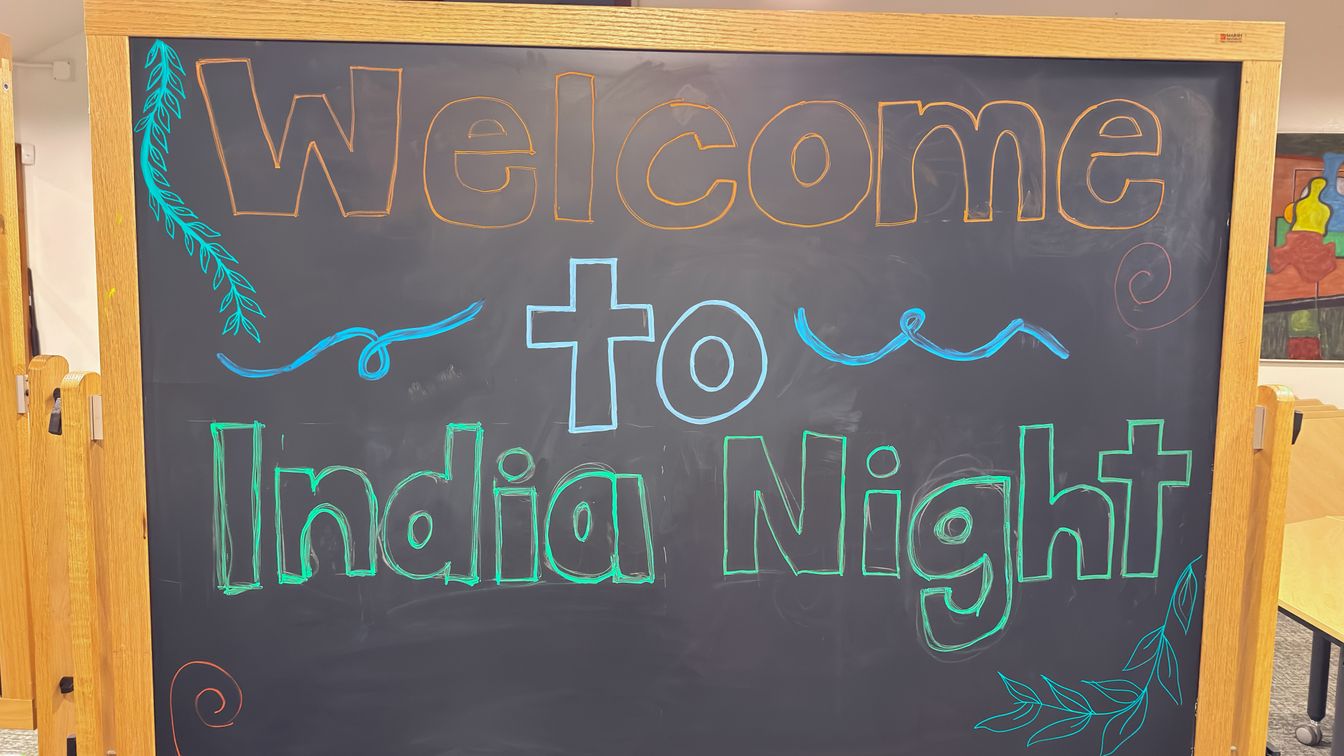 Welcome
to
India Night